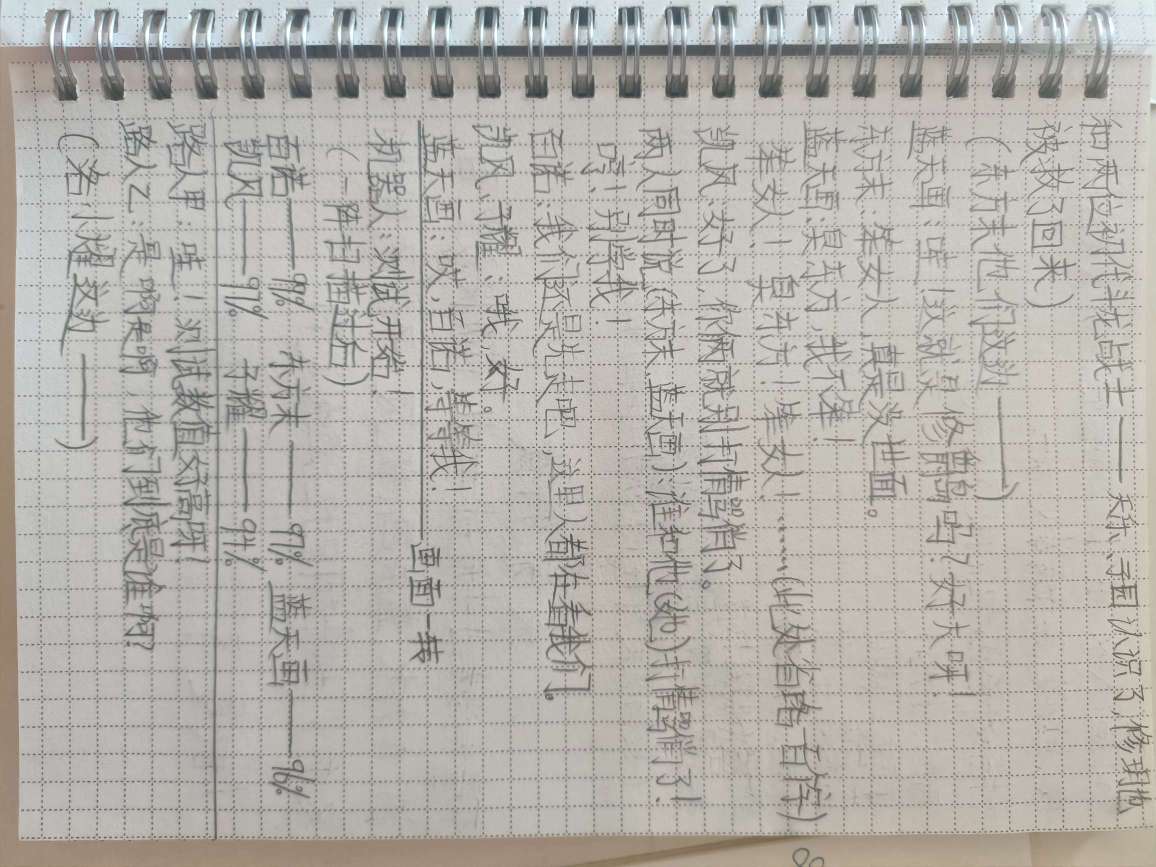 和两位初代斗龙战士——天乐、雷古认识了,修理也
被救了回来)
(东方末他们这边——)
蓝天画:哇!这就是修普鸣?好大呀!
东方末:笨女人,真是没世面。
蓝天画:臭东方,我不笨!
笨女人!臭东方!笨女人!……(此处省略百字)
凯风:好了,你俩就别打情骂俏了。
两人同时说(东方末、蓝天画):谁和他(她)打情骂俏了!
哼!别学我!
百诺:我们还是先走吧,这里人都在看我们。
凯风、子耀:哦,好。
蓝天画:哎,百诺,等等我!
——画面一转
机器人:测试开始!
(一阵扫描过后)
百诺——98% 东方末——97% 蓝天画——96%
凯风——97% 子耀——94%
路人甲:哇!测试数值好高呀!
路人乙:是啊是啊,他们到底是谁啊?
(洛小熠这边——)